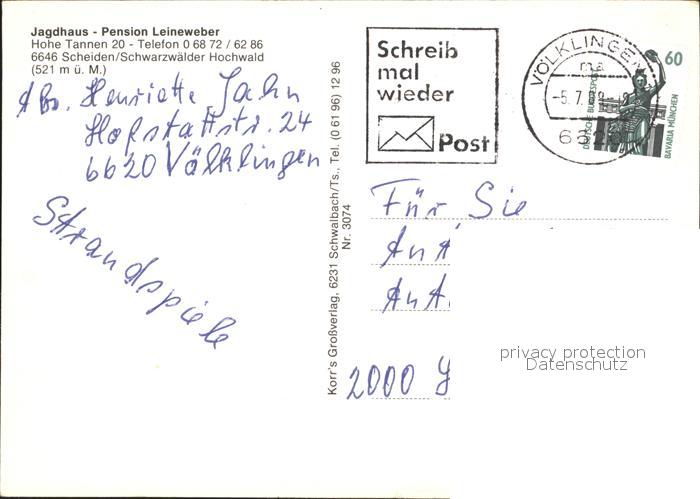 Jagdhaus - Pension Leineweber
Hohe Tannen 20 - Telefon 0 68 72 / 62 86
6646 Scheiden/Schwarzwälder Hochwald
(521 m ü. M.)
Abs. Henriette Jahn
Hofstattstr. 24
6620 Völklingen
Strandspiele
Korr's Großverlag, 6231 Schwalbach/Ts., Tel. (0 61 96) 12 96
Nr. 3074
Schreib
mal
wieder
Post
VÖLKLINGEN
ma
-5.7.
60
DEUTSCHE BUNDESPOST
BAVARIA MÜNCHEN
Für Sie
An
An
2000
privacy protection
Datenschutz